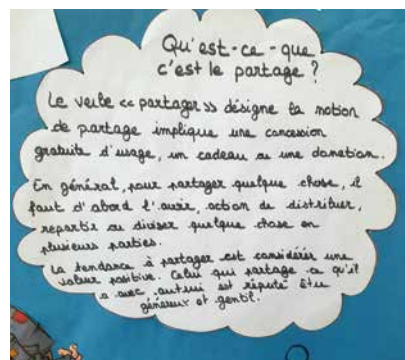 Qu'est-ce-que
c'est le partage ?
Le verbe << partager >> désigne la notion
de partage implique une concession
gratuite d'usage, un cadeau ou une donation.
En général, pour partager quelque chose, il
faut d'abord l'avoir, action de distribuer,
répartir ou diviser quelque chose en
plusieurs parties.
La tendance à partager est considérér une
valeur positive. Celui qui partage ce qu'il
a avec autrui est réputé être
généreux et gentil.